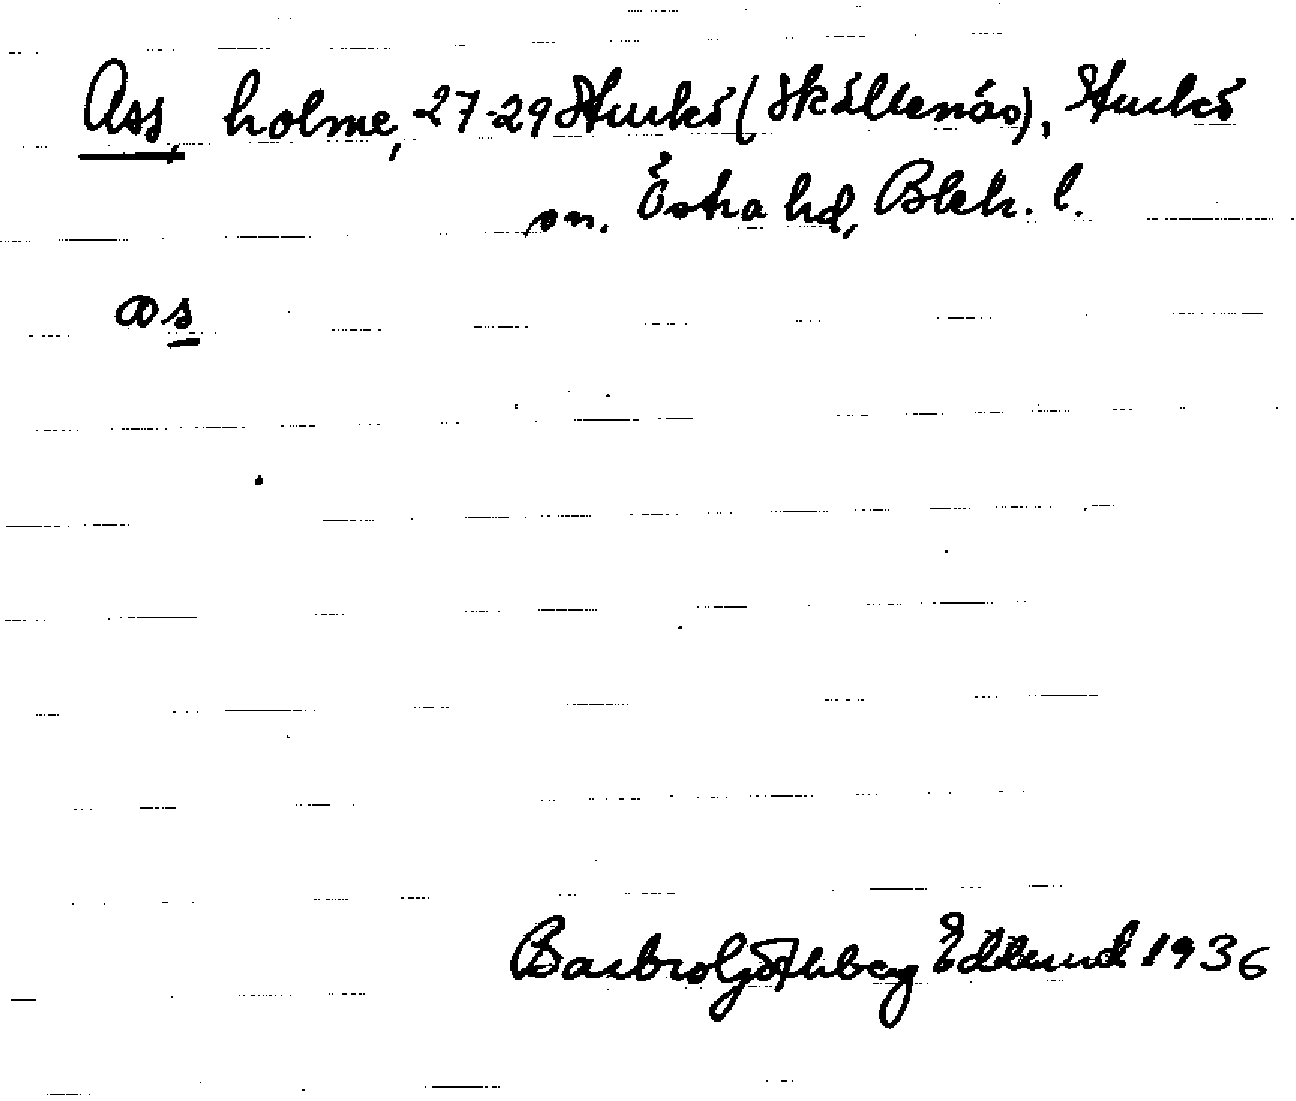 Ass, holme, 27-29 Sturkö (Skällenäs), Sturkö
sn. Östra hd, Blek. l.
as
Barbro Götherg Edlund 1936